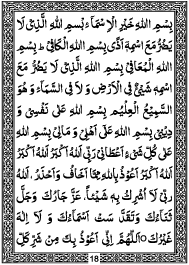 بِسْمِ اللهِ خَيْرِ الْاِسْمَآءِ بِسْمِ اللهِ الَّذِىْ لَا
يَضُرُّ مَعَ اسْمِهٖ اَذًى بِسْمِ اللهِ الْكَافِىْ بِسْمِ
اللهِ الْمُعَافِىْ بِسْمِ اللهِ الَّذِىْ لَا يَضُرُّ مَعَ
اسْمِهٖ شَىْءٌ فِى الْاَرْضِ وَ لَا فِى السَّمَآءِ وَ هُوَ
السَّمِيْعُ الْعَلِيْمُ بِسْمِ اللهِ عَلٰى نَفْسِىْ وَ
دِيْنِىْ بِسْمِ اللهِ عَلٰى اَهْلِىْ وَ مَالِىْ بِسْمِ اللهِ
عَلٰى كُلِّ شَىْءٍ اَعْطَانِىْ رَبِّىْ اَللهُ اَكْبَرُ اَللهُ اَكْبَرُ
اَللهُ اَكْبَرُ اَعُوْذُ بِاللهِ مِمَّا اَخَافُ وَ اَحْذَرُ اَللهُ
رَبِّىْ لَا اُشْرِكُ بِهٖ شَيْئًا عَزَّ جَارُكَ وَ جَلَّ
ثَنَاءُكَ وَ تَقَدَّسَتْ اَسْمَاءُكَ وَ لَا اِلٰهَ
غَيْرُكَ اَللّٰهُمَّ اِنِّىْ اَعُوْذُ بِكَ مِنْ شَرِّ كُلِّ
18